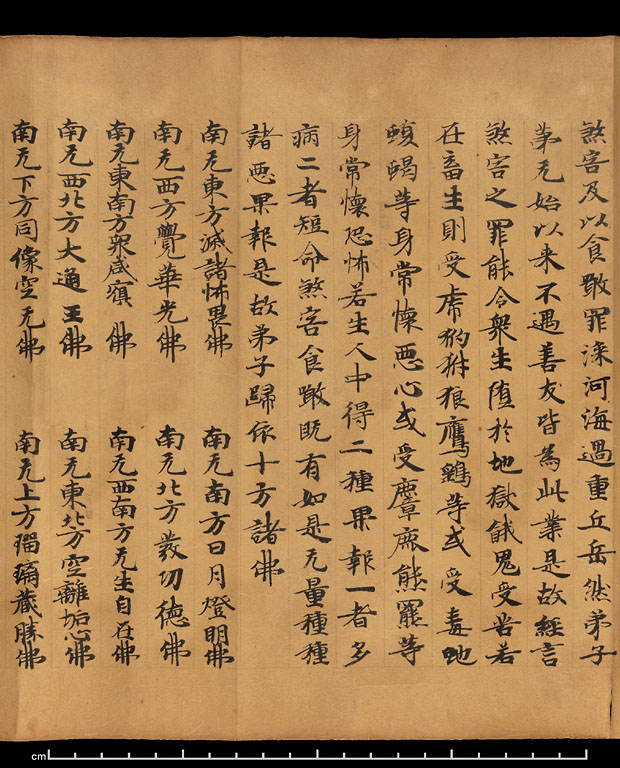 煞害及以食噉罪深河海過重丘岳然弟子
等无始以来不遇善友皆為此業是故經言
煞害之罪能令衆生墮於地獄餓鬼受苦若
在畜生則受虎豹豺狼鷹鷂等或受毒虵
蝮蝎等身常懷惡心或受麞鹿熊羆等
身常懷恐怖若生人中得二種果報一者多
病二者短命煞害食噉既有如是无量種種
諸惡果報是故弟子歸依十方諸佛
南无東方滅諸怖畏佛 南无南方日月燈明佛
南无西方覺華光佛 南无北方發功德佛
南无東南方衆感佛 南无西南方无生自在佛
南无西北方大通王佛 南无東北方空離垢心佛
南无下方同像空无佛 南无上方瑠璃藏勝佛
cm